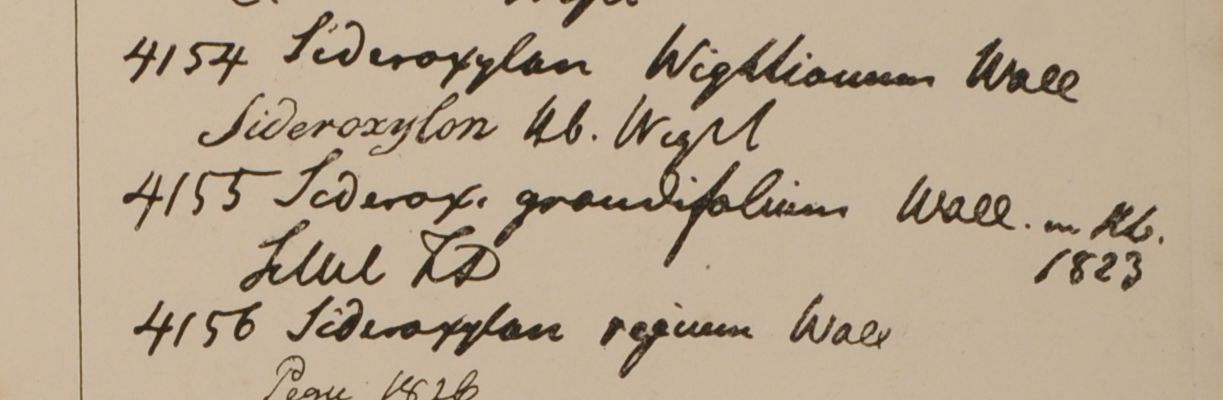 4154 Sideroxylon Wightianum Wall
Sideroxylon Hb. Wight
4155 Siderox. grandifolium Wall. in Hb.
1823
Sillet FD
4156 Sideroxylon regium Wall
Pegu 1826